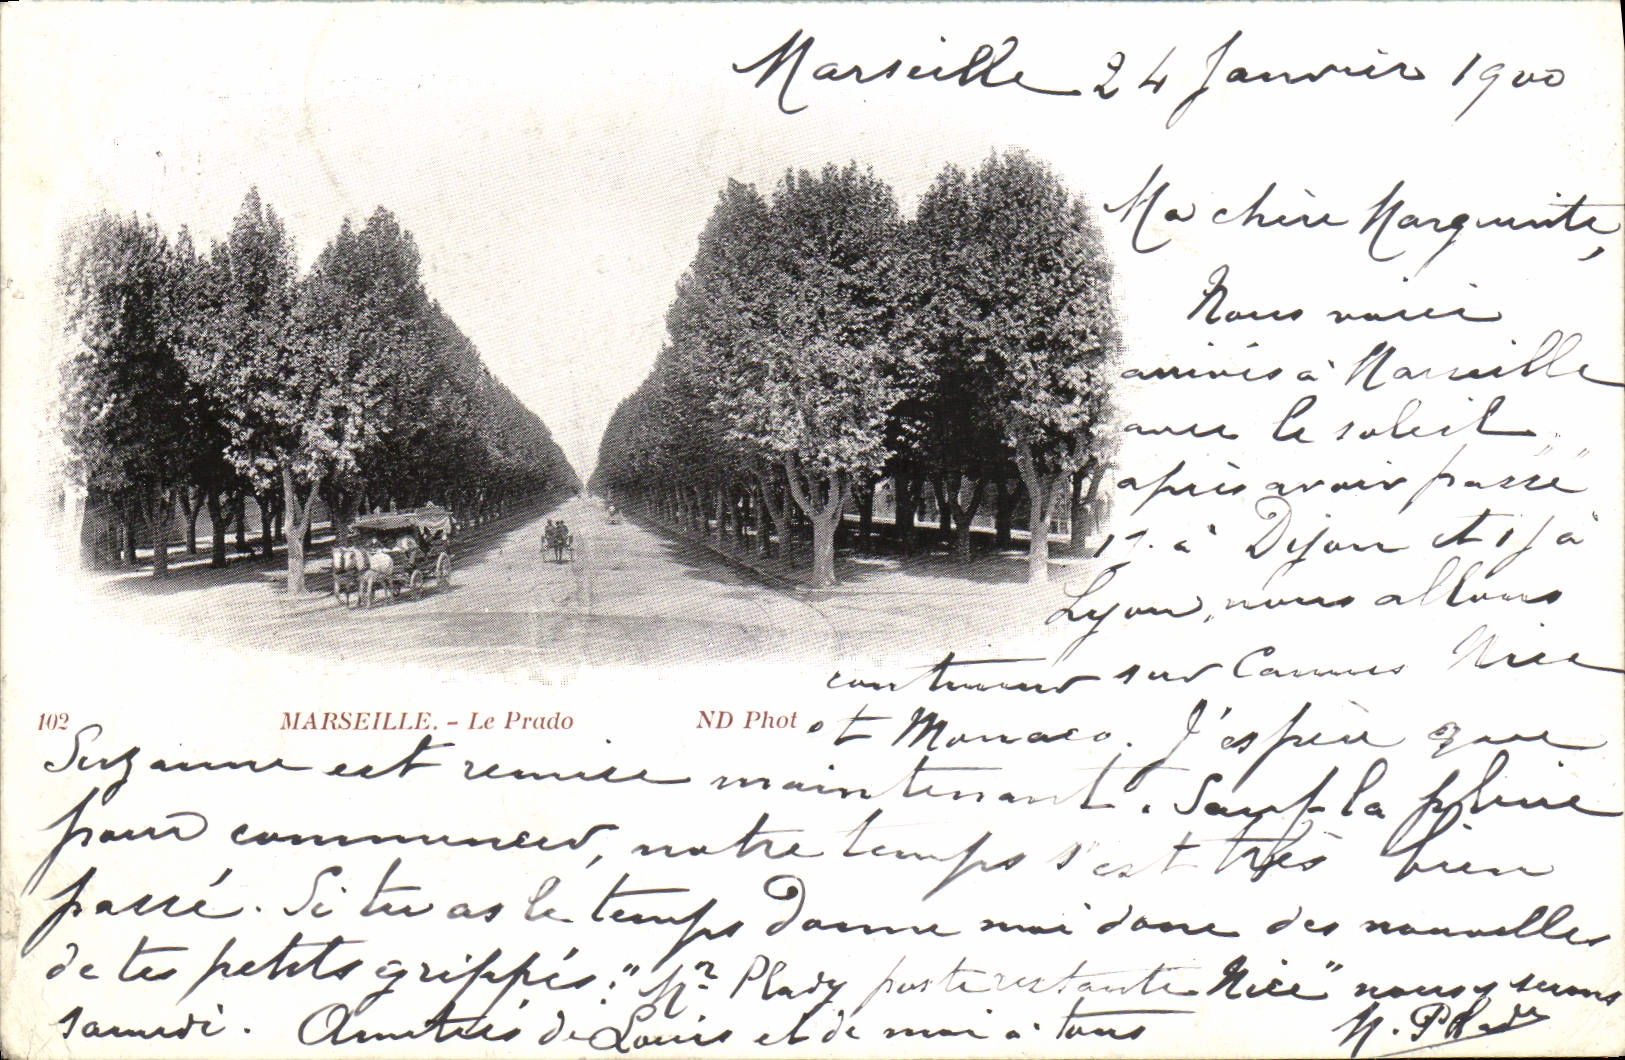 Marseille 24 Janvier 1900
Ma chère Marguerite,
Nous voici
arrivés à Marseille
avec le soleil
après avoir passé
1 j. à Dijon et 1 j à
Lyon, nous allons
continuer sur Cannes Nice
et Monaco. J'espère que
102 MARSEILLE. - Le Prado ND Phot
Suzanne est remise maintenant. Sauf la pluie
pour commencer, notre temps s'est très bien
passé. Si tu as le temps donne moi donc des nouvelles
de tes petits grippés: "Mr Plady poste restante Nice" nous y serons
samedi. Amitiés de Louis et de moi à tous